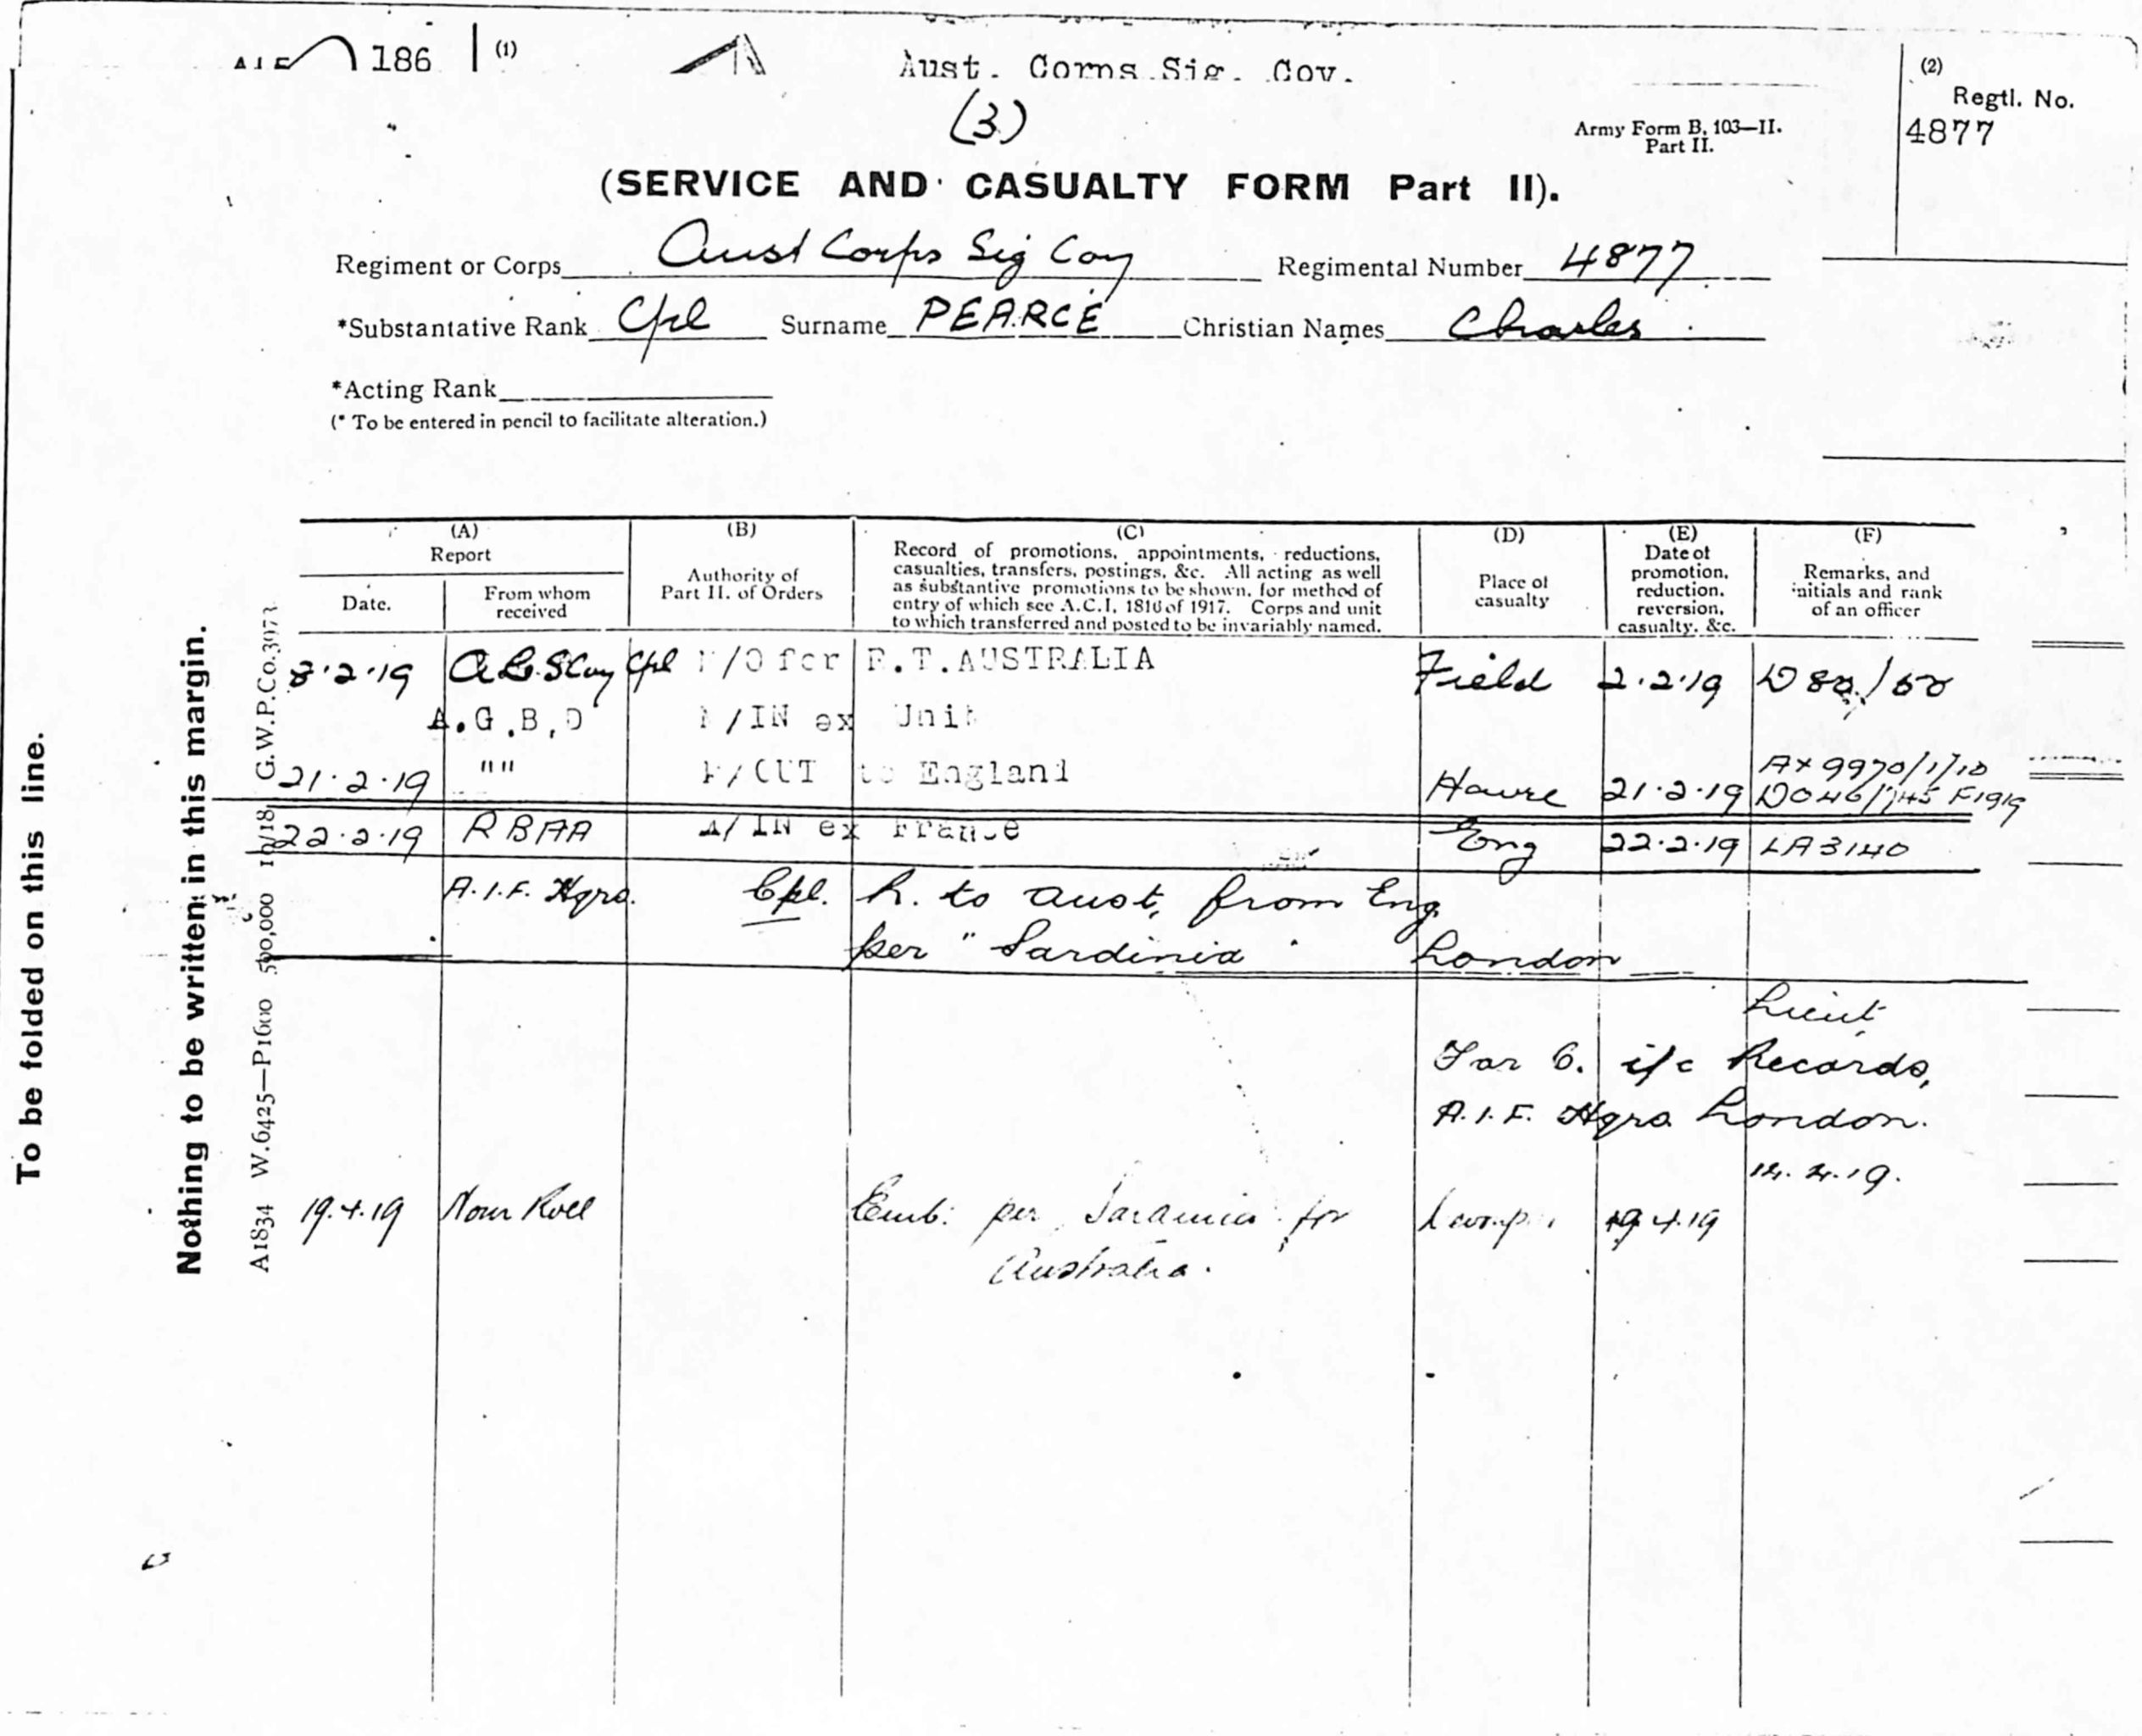 A I F 186 (1)
Aust. Corps Sig. Coy.
(3)
(2)
Regtl. No.
4877
Army Form B, 103—II.
Part II.
(SERVICE AND CASUALTY FORM Part II).
Regiment or Corps Aust Corps Sig Coy Regimental Number 4877
*Substantative Rank Cpl Surname PEARCE Christian Names Charles
*Acting Rank
(* To be entered in pencil to facilitate alteration.)
(A)
Report
Date.
From whom
received
(B)
Authority of
Part II. of Orders
(C)
Record of promotions, appointments, reductions,
casualties, transfers, postings, &c. All acting as well
as substantive promotions to be shown, for method of
entry of which see A.C.I, 1816 of 1917. Corps and unit
to which transferred and posted to be invariably named.
(D)
Place of
casualty
(E)
Date of
promotion,
reduction,
reversion,
casualty, &c.
(F)
Remarks, and
initials and rank
of an officer
8.2.19 Cpl M/O for R.T.AUSTRALIA Field 2.2.19
A.G.B.D M/IN ex Unit
21.2.19 "" M/OUT to England Havre 21.2.19
22.2.19 RBAA M/IN ex France Eng 22.2.19 LA3140
A.I.F. Hqrs. Cpl. R. to Aust, from Eng
per "Sardinia" London
Lieut
For O. i/c Records,
A.I.F. Hqrs London.
19.4.19 Nom Roll Emb: per Sardinia for 19.4.19
Australia.
To be folded on this line.
Nothing to be written in this margin.
A1834 W.6425—P1600 500,000 10/18 G.W.P.Co.3973